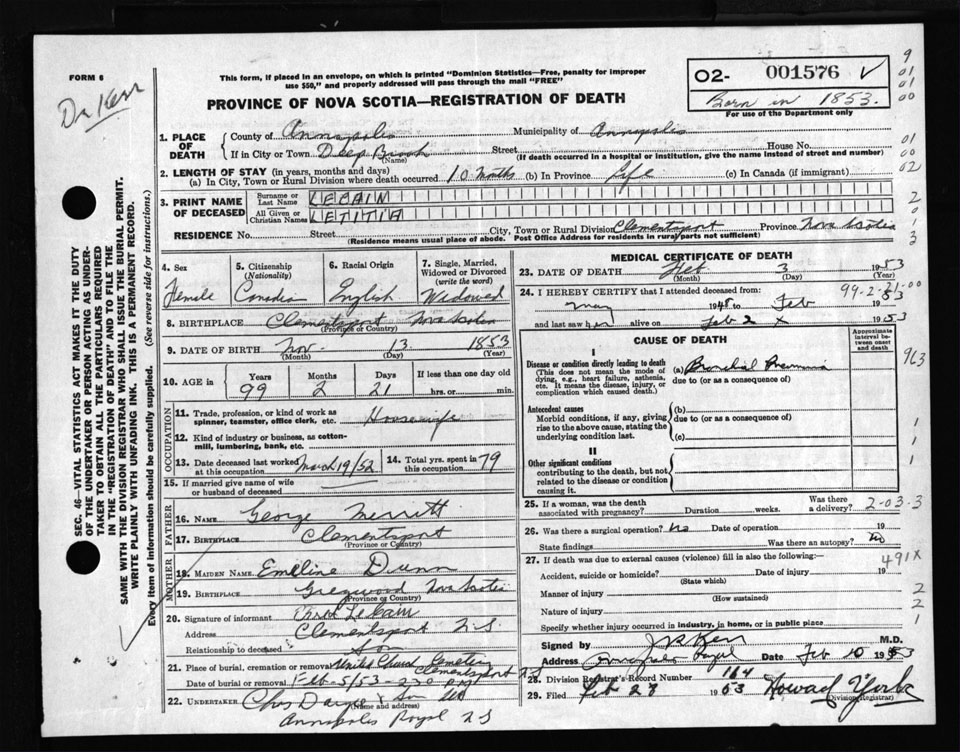 FORM 6
Dr Kerr
This form, if placed in an envelope, on which is printed "Dominion Statistics—Free, penalty for improper
use $50," and properly addressed will pass through the mail "FREE"
PROVINCE OF NOVA SCOTIA—REGISTRATION OF DEATH
O2- 001576
Born in 1853.
For use of the Department only
9
01
01
00
1. PLACE OF DEATH
County of Annapolis Municipality of Annapolis
If in City or Town Deep Brook Street House No.
(Name) (If death occurred in a hospital or institution, give the name instead of street and number)
01
00
02
2. LENGTH OF STAY (in years, months and days)
(a) In City, Town or Rural Division where death occurred 10 Months (b) In Province Life (c) In Canada (if immigrant)
3. PRINT NAME OF DECEASED
Surname or Last Name LECAIN
All Given or Christian Names LETITIA
2
0
1
3
RESIDENCE No. Street City, Town or Rural Division Clementsport Province Nova Scotia
(Residence means usual place of abode. Post Office Address for residents in rural parts not sufficient)
SEC. 46—VITAL STATISTICS ACT MAKES IT THE DUTY
OF THE UNDERTAKER OR PERSON ACTING AS UNDER-
TAKER TO OBTAIN ALL THE PARTICULARS REQUIRED
IN THE "REGISTRATION OF DEATH" AND TO FILE THE
SAME WITH THE DIVISION REGISTRAR WHO SHALL ISSUE THE BURIAL PERMIT.
WRITE PLAINLY WITH UNFADING INK. THIS IS A PERMANENT RECORD.
Every item of information should be carefully supplied. (See reverse side for instructions.)
4. Sex
Female
5. Citizenship
(Nationality)
Canadian
6. Racial Origin
English
7. Single, Married,
Widowed or Divorced
(write the word)
Widowed
8. BIRTHPLACE Clementsport Nova Scotia
(Province or Country)
9. DATE OF BIRTH Nov. 13 1853
(Month) (Day) (Year)
10. AGE in
Years Months Days If less than one day old
99 2 21 hrs. or min.
OCCUPATION
11. Trade, profession, or kind of work as
spinner, teamster, office clerk, etc. Housewife
12. Kind of industry or business, as cotton-
mill, lumbering, bank, etc.
13. Date deceased last worked
at this occupation March 19/52
14. Total yrs. spent in
this occupation 79
15. If married give name of wife
or husband of deceased
FATHER
16. NAME George Merritt
17. BIRTHPLACE Clementsport
(Province or Country)
MOTHER
18. MAIDEN NAME Emeline Dunn
19. BIRTHPLACE Greywood Nova Scotia
(Province or Country)
20. Signature of informant LeCain
Address Clementsport N.S
Relationship to deceased Son
21. Place of burial, cremation or removal United Church Cemetery Clementsport
Date of burial or removal Feb-5/53-2.30 P.M
22. UNDERTAKER Chas & Son
(Name and address)
Annapolis Royal N S
MEDICAL CERTIFICATE OF DEATH
23. DATE OF DEATH Feb 3 1953
(Month) (Day)
24. I HEREBY CERTIFY that I attended deceased from: 99-2-21-00
May 1948 to Feb 1953
and last saw her alive on Feb 2 x 1953
CAUSE OF DEATH
Approximate
interval be-
tween onset
and death
I
Disease or condition directly leading to death
(This does not mean the mode of
dying, e.g., heart failure, asthenia,
etc. It means the disease, injury, or
complication which caused death.)
(a) Bronchial Pneumonia
due to (or as a consequence of)
963
Antecedent causes
Morbid conditions, if any, giving
rise to the above cause, stating the
underlying condition last.
(b)
due to (or as a consequence of)
(c)
1
1
1
II
Other significant conditions
contributing to the death, but not
related to the disease or condition
causing it.
25. If a woman, was the death
associated with pregnancy? Duration weeks. Was there
a delivery?
2-03-3
26. Was there a surgical operation? No Date of operation 19
State findings Was there an autopsy? No
27. If death was due to external causes (violence) fill in also the following:—
491X
Accident, suicide or homicide? Date of injury 19
(State which)
Manner of injury
(How sustained)
Nature of injury
Specify whether injury occurred in industry, in home, or in public place
2
2
1
Signed by J R Kerr M.D.
Address Annapolis Royal Date Feb 10 1953
28. Division Registrar's Record Number 164
29. Filed Feb 27 1953 Howard Yorke
(Division Registrar)